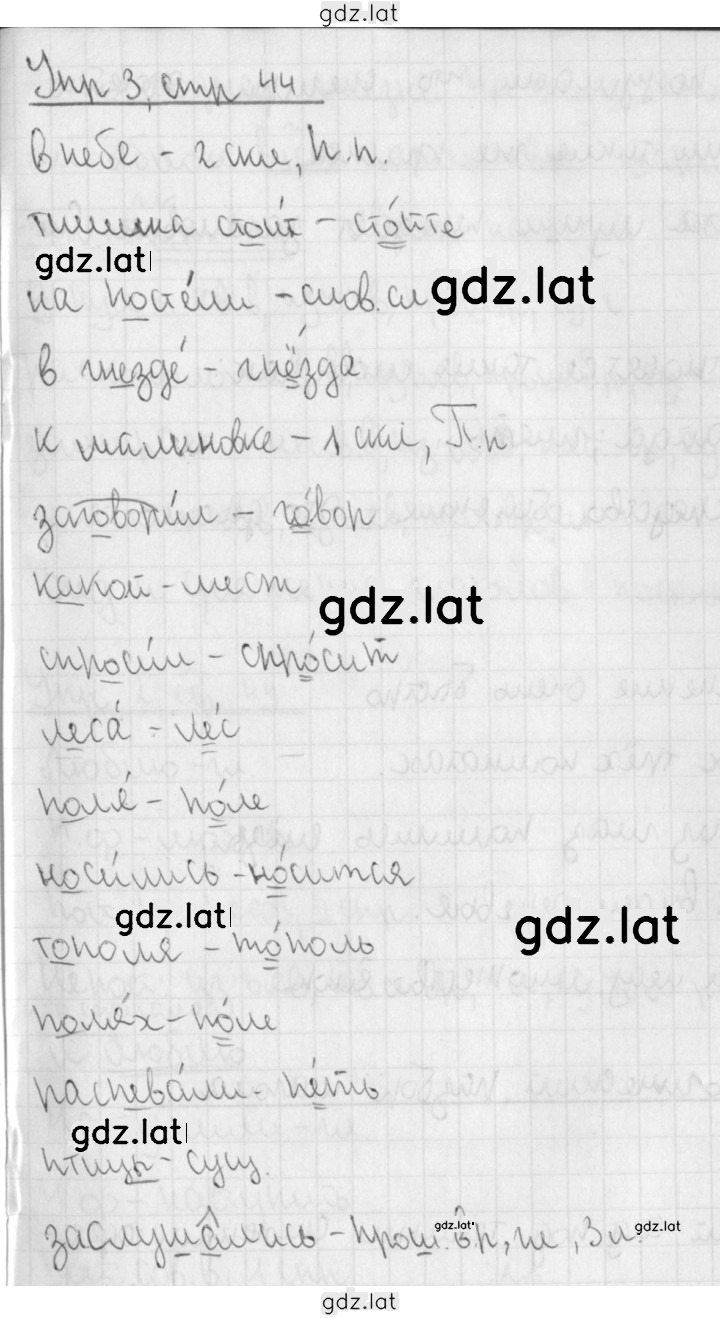 gdz.lat
Упр 3, стр 44
в небе - 2 скл, П.п.
тишина стои́т - сто́йте
gdz.lat
на посте́ли - слов. сл
gdz.lat
в гнезде́ - гнёзда
к малиновке - 1 скл, П п
заговори́ли - го́вор
какой - мест
gdz.lat
спроси́ли - спро́сит
леса́ - ле́с
поля́ - по́ле
носи́лись - но́сится
gdz.lat
gdz.lat
тополя - то́поль
поля́х - по́ле
распева́ли - пе́ть
gdz.lat
птицы - сущ.
заслушались - прош. вр, гл, 3 л.
gdz.lat
gdz.lat
gdz.lat